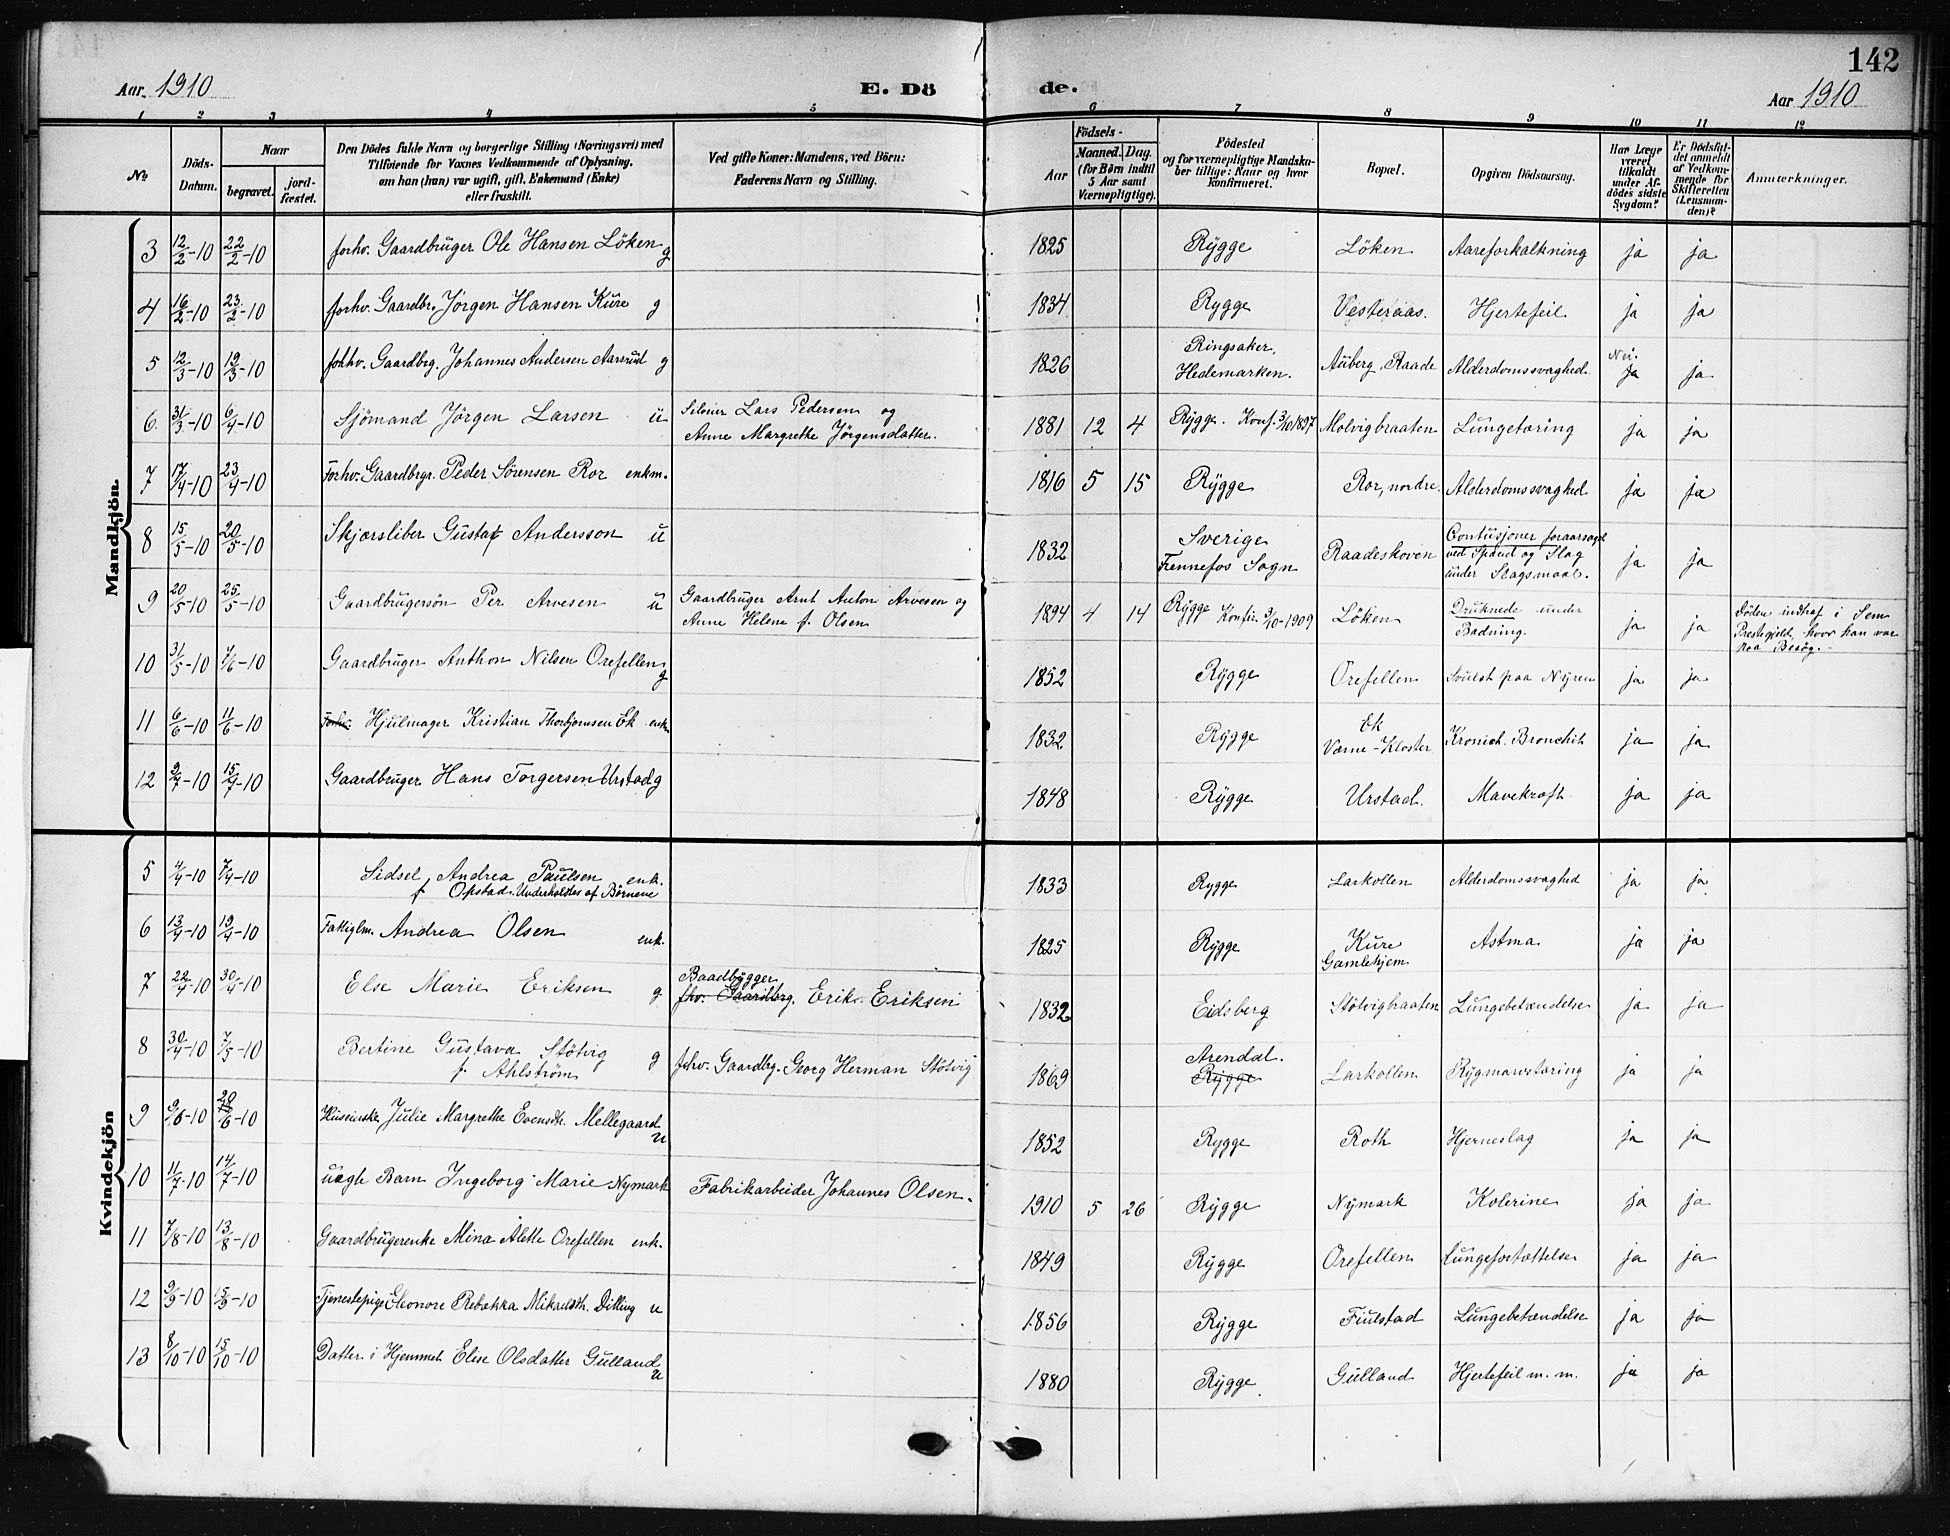 142
Aar 1910
E. Dö de.
Aar 1910
1 2 3 4 5 6 7 8 9 10 11 12
No
Döds-Datum.
Naar
begravet.
jord-fæstet.
Den Dödes fulde Navn og borgerlige Stilling (Næringsvei) med
Tilföiende for Voxnes Vedkommende af Oplysning,
om han (hun) var ugift, gift, Enkemand (Enke)
eller fraskilt.
Ved gifte Koner: Mandens, ved Börn:
Faderens Navn og Stilling.
Födsels-
Aar
Maaned. Dag.
(for Børn indtil
5 Aar samt
Værnepligtige).
Födested
og for værnepligtige Mandska-
ber tillige: Naar og hvor
konfirmeret.
Bopæl.
Opgiven Dödsaarsag.
Har Læge
været
tilkaldt
under Af-
dödes sidste
Sygdom?
Er Dödsfal-
det anmeldt
af Vedkom-
mende for
Skifteretten
(Lensman-
den)?
Anmærkninger.
Mandkjön.
3 12/2-10 22/2-10 forhv. Gaardbruger Ole Hansen Löken g 1825 Rygge Löken Aareforkalkning ja ja
4 16/2-10 23/2-10 forhv. Gaardbr. Jörgen Hansen Kure g 1834 Rygge Vesteraas. Hjertefeil ja ja
5 12/3-10 19/3-10 forhv. Gaardbrg. Johannes Andersen Aarsrud g 1826 Ringsaker, Hedemarken. Auberg, Raade Alderdomssvaghed. Nei. ja ja
6. 31/3-10 6/4-10 Sjömand Jörgen Larsen u Selveier Lars Pedersen og
Anne Margrethe Jörgensdatter. 1881 12 4 Rygge. Konf. 3/10 1897 Molvigbraaten Lungetæring ja ja
7 17/4-10 23/4-10 Forhv. Gaardbrgr. Peder Sörensen Ror enkm. 1816 5 15 Rygge Ror, nordre. Alderdomssvaghed ja ja
8 15/5-10 20/5-10 Skjærsliber Gustaf Andersson u 1832 Sverige Fennefos Sogn Raadeskoven Contusjoner foraarsaget
ved Spænd og Slag
under Slagsmaal. ja ja
9 20/5-10 25/5-10 Gaardbrugersön Per Arvesen u Gaardbruger Arnt Anton Arvesen og
Anne Helene f. Olsen 1894 4 14 Rygge Konfir. 3/10-1909 Löken Druknede under
Badning. ja ja Döden indtraf i Sem
Prestegjeld, hvor han var
paa Besög.
10 31/5-10 7/6-10 Gaardbruger Anthon Nilsen Orefellen g 1852 Rygge Orefellen Svulst paa Nyren ja ja
11 6/6-10 11/6-10 Forhv. Hjulmager Kristian Thorbjørnsen Ek enk. 1832 Rygge Ek
Værne-Kloster Kronisk Bronchit ja ja
12 9/7-10 15/7-10 Gaardbruger Hans Torgersen Urstad g 1848 Rygge Urstad. Mavekræft ja ja
Kvindekjön
5 4/4-10 7/4-10 Sidsel Andrea Paulsen enk.
f Opstad. Underholdes af Börnene 1833 Rygge Larkollen Alderdomssvaghed ja ja
6 13/4-10 19/4-10 Fattiglm. Andrea Olsen enk. 1825 Rygge Kure
Gamlehjem Astma ja ja
7 22/4-10 30/4-10 Else Marie Eriksen g Baadbygger
fhv. Gaardbrg. Erik Eriksen 1832 Eidsberg Stötvigbraaten Lungebetændelse ja ja
8 30/4-10 7/5-10 Bertine Gustava Stötvig g
f. Ahlström forhv. Gaardbg. Georg Herman Stötvig 1869 Arendal.
Rygge Larkollen Rygmarvstæring ja ja
9 9/6-10 20/6-10 Huseierske Julie Margrethe Evensdtr. Mellegaard u 1852 Rygge Roth Hjerneslag ja ja
10 11/7-10 14/7-10 uægte Barn Ingeborg Marie Nymark Fabrikarbeider Johannes Olsen. 1910 5 26 Rygge Nymark Kolerine ja ja
11 7/8-10 13/8-10 Gaardbrugerenke Mina Alette Orefellen enk. 1849 Rygge Orefellen Lungefortættelse ja ja
12 9/9-10 15/9-10 Tjenestepige Eleonore Rebækka Mikaelsdtr. Dilling u 1856 Rygge Fiulstad Lungebetændelse ja ja
13 8/10-10 15/10-10 Datter i Hjemmet Elise Olsdatter Gulland u 1880 Rygge. Gulland Hjertefeil m. m. ja ja